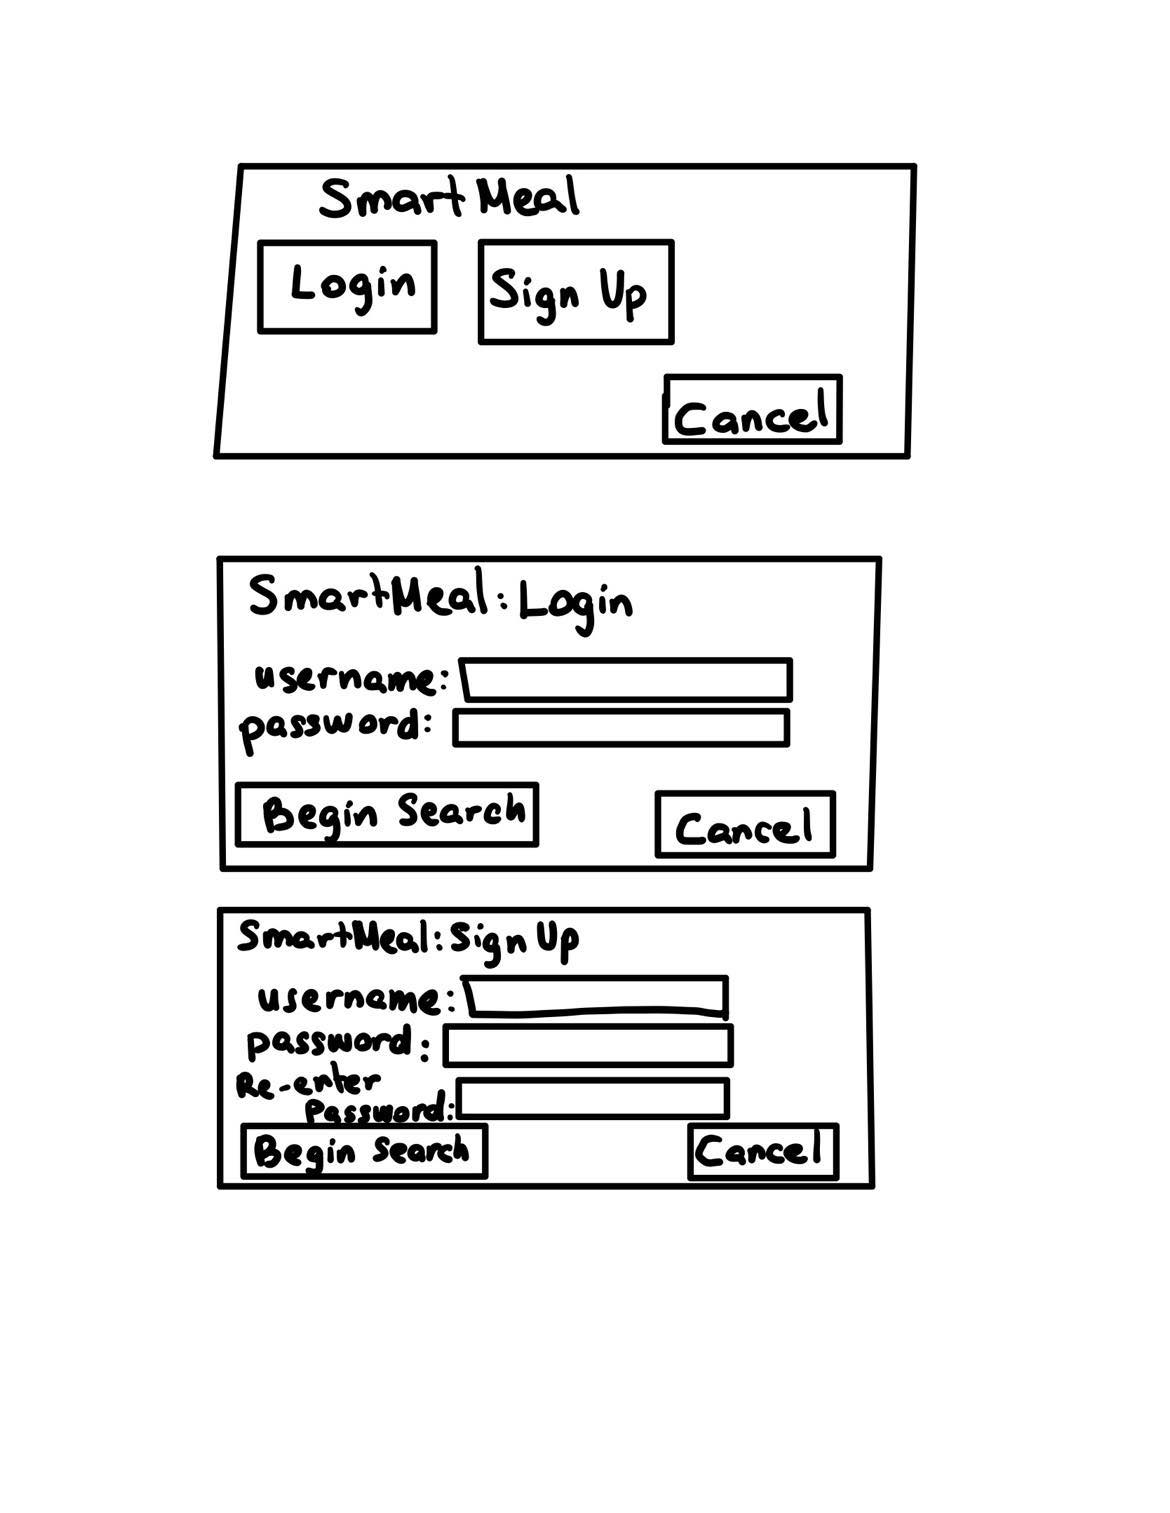 Smart Meal
Login Sign Up
Cancel
SmartMeal: Login
username:
password:
Begin Search Cancel
SmartMeal: Sign Up
username:
password:
Re-enter
Password:
Begin Search Cancel